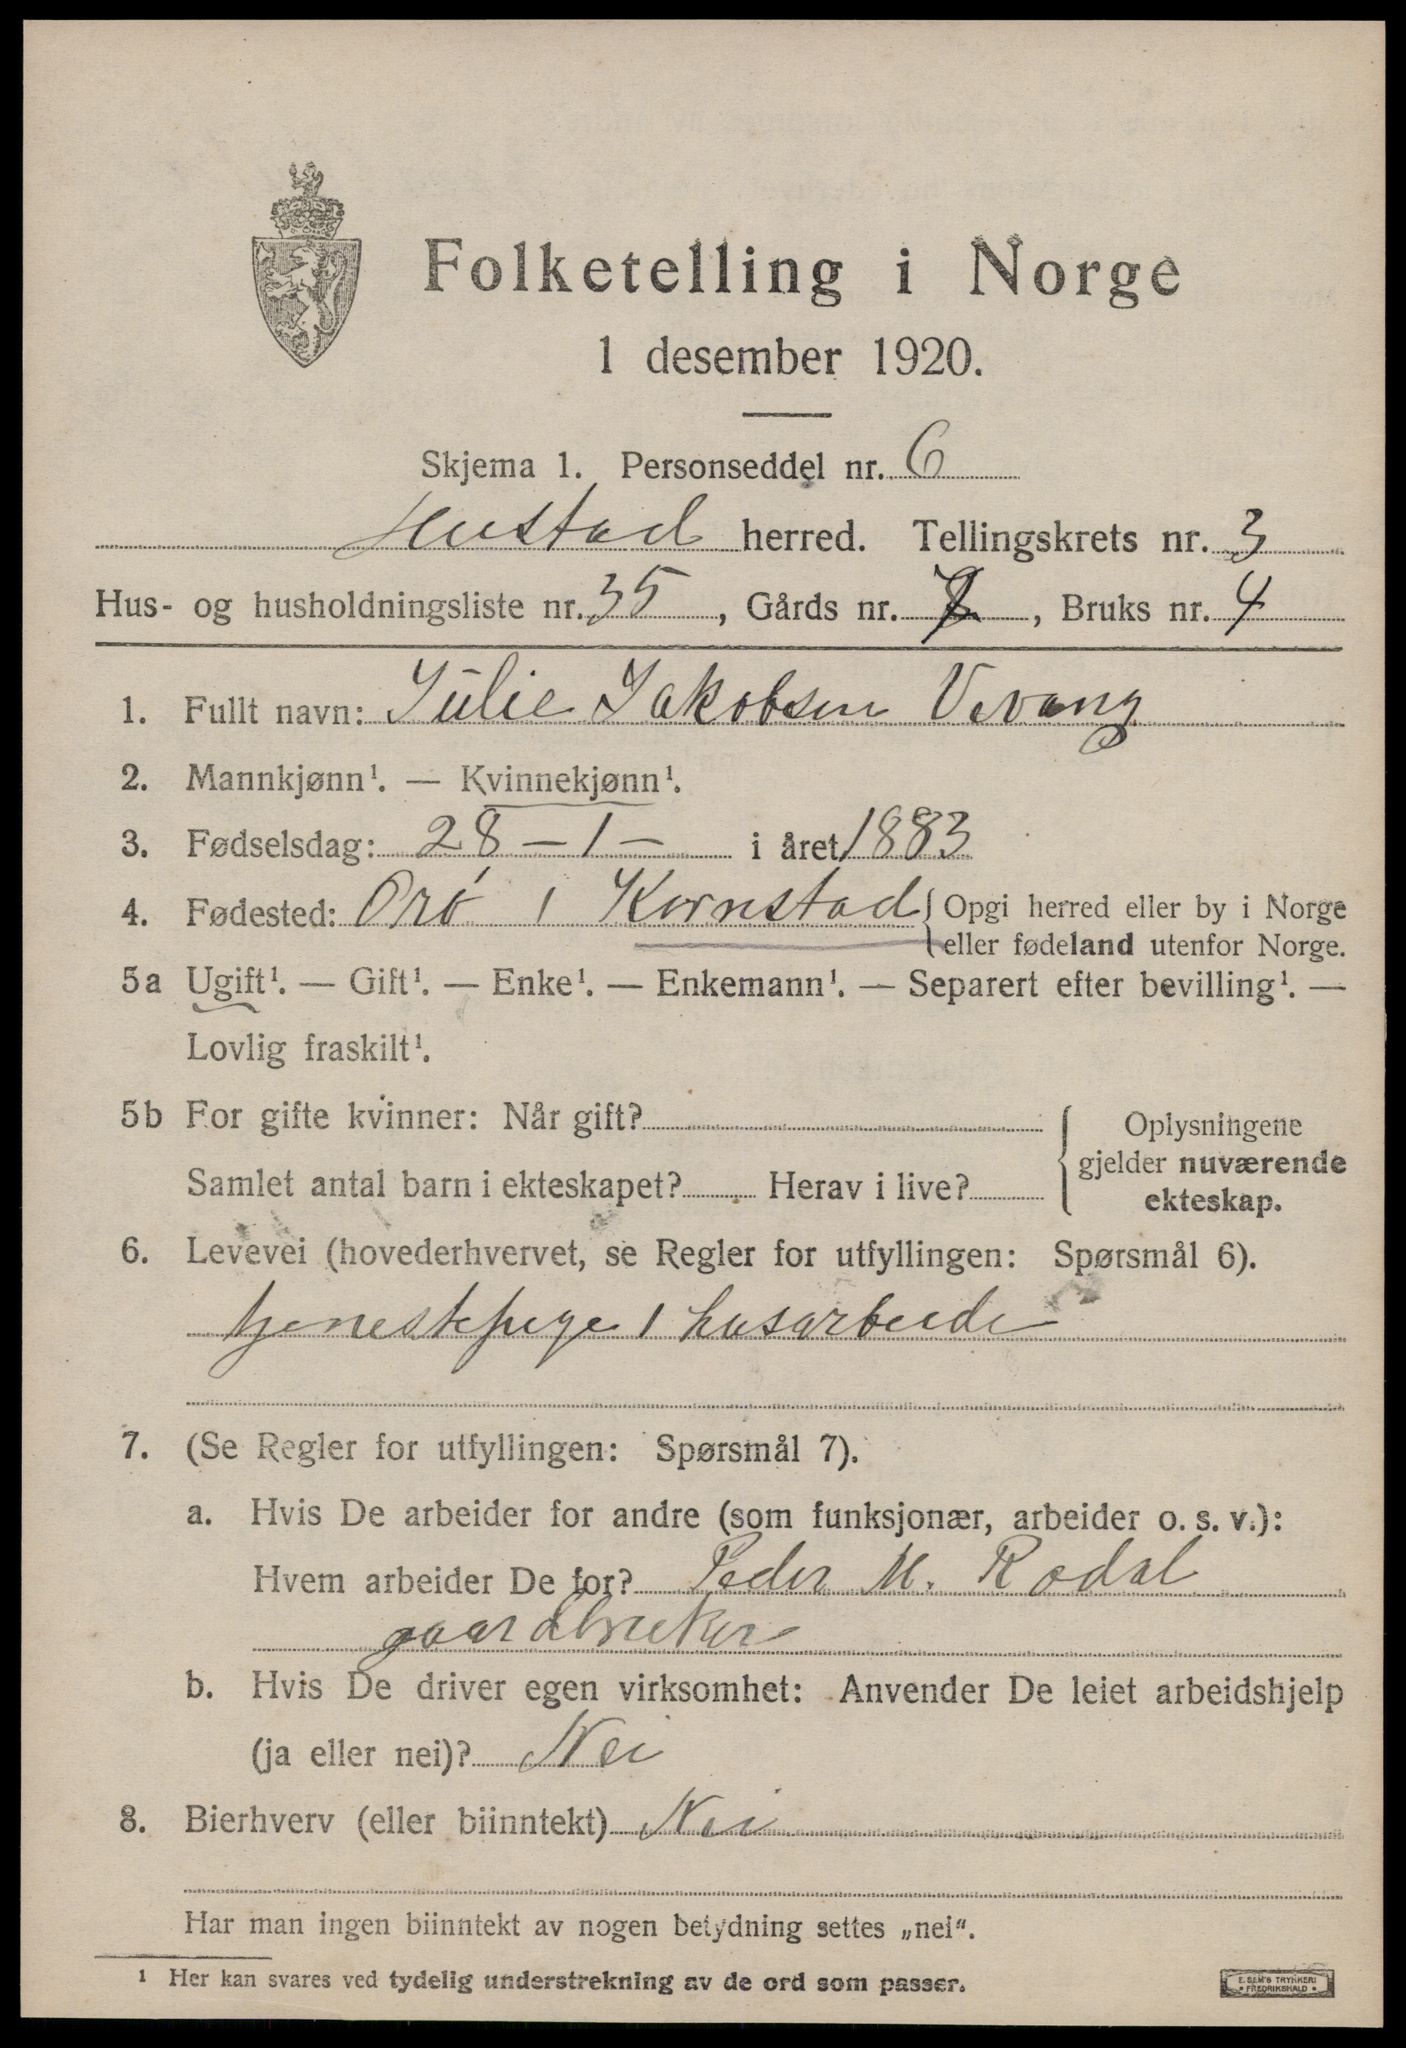 Folketelling i Norge
1 desember 1920.
Skjema 1. Personseddel nr. 6
Hustad herred. Tellingskrets nr. 3
Hus- og husholdningsliste nr. 35, Gårds nr. 7, Bruks nr. 4
1. Fullt navn: Julie Jakobsen Vevang
2. Mannkjønn¹. — Kvinnekjønn¹.
3. Fødselsdag: 28 – 1 – i året 1883
4. Fødested: Orö i Kornstad { Opgi herred eller by i Norge
eller fødeland utenfor Norge.
5a Ugift¹. — Gift¹. — Enke¹. — Enkemann¹. — Separert efter bevilling¹. —
Lovlig fraskilt¹.
5b For gifte kvinner: Når gift?
Samlet antal barn i ekteskapet? Herav i live?
Oplysningene
gjelder nuværende
ekteskap.
6. Levevei (hovederhvervet, se Regler for utfyllingen: Spørsmål 6).
tjenestepige i husarbeide
7. (Se Regler for utfyllingen: Spørsmål 7).
a. Hvis De arbeider for andre (som funksjonær, arbeider o. s. v.):
Hvem arbeider De for? Peder M. Rødal
gaardbruker
b. Hvis De driver egen virksomhet: Anvender De leiet arbeidshjelp
(ja eller nei)? Nei
8. Bierhverv (eller biinntekt) Nei
Har man ingen biinntekt av nogen betydning settes „nei“.
¹ Her kan svares ved tydelig understrekning av de ord som passer.
E. SEM'S TRYKKERI
FREDRIKSHALD